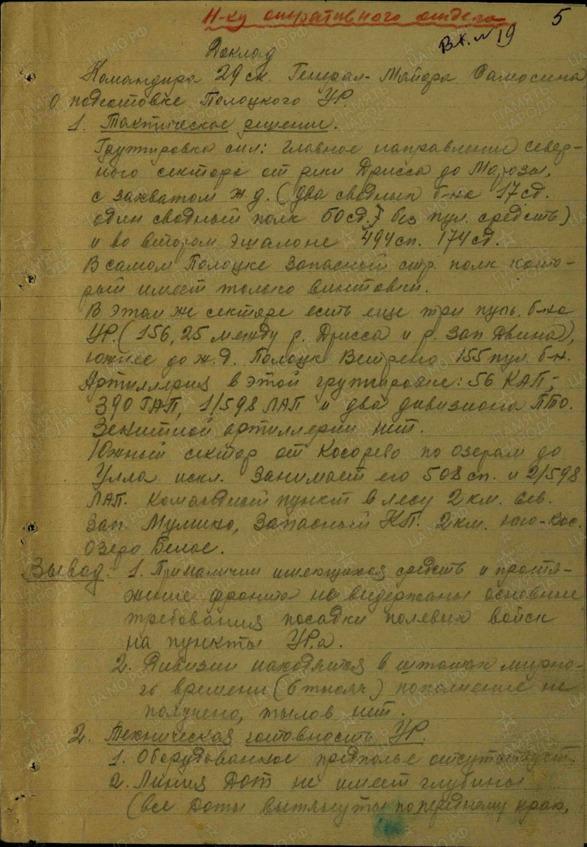 Н-ку оперативного отдела
5
Вх. № 19
Доклад
Командира 29 ск. Генерал-Майора Самосина
О подготовке Полоцкого УР
1. Тактическое решение.
Группировка сил: главное направление север-
ного сектора от реки Дрисса до Морозы,
с захватом ж.д. (два сводных б-на 17сд.
один сводный полк 50сд. без пул. средств)
и во втором эшалоне 494сп. 174сд.
В самом Полоцке Запасный стр. полк кото-
рый имеет только винтовки.
В этом же секторе есть еще три пуль. б-на
УР. (156, 25 между р. Дрисса и р. Зап Двина),
южнее до ж.д. Полоцк Ветрено 155 пул. б-н.
Артиллерия в этой группировке: 56 КАП;
390 ГАП, 1/598 ЛАП и два дивизиона ПТО.
Зенитной артиллерии нит.
Южный сектор от Косорево по озерам до
Улла искл. Занимает его 508 сп. и 2/598
ЛАП. Командный пункт в лесу 2 км. сев.
зап. Мулишко, Запасный КП. 2 км. юго-вос.
озеро Белое.
Вывод: 1. При наличии имеющихся средств и протя-
жение фронта не выдержаны основные
требования посадки полевых войск
на пункты УР.а.
2. Дивизии находятся в штатах мирно-
го времени (6 тысяч) пополнение не
получено, тылов нит.
2. Техническая готовность УР
1. Оборудованное предполье отсутствует.
2. Линия Дот не имеет глубины
(все доты вытянуты по переднему краю,
ЦАМО.РФ